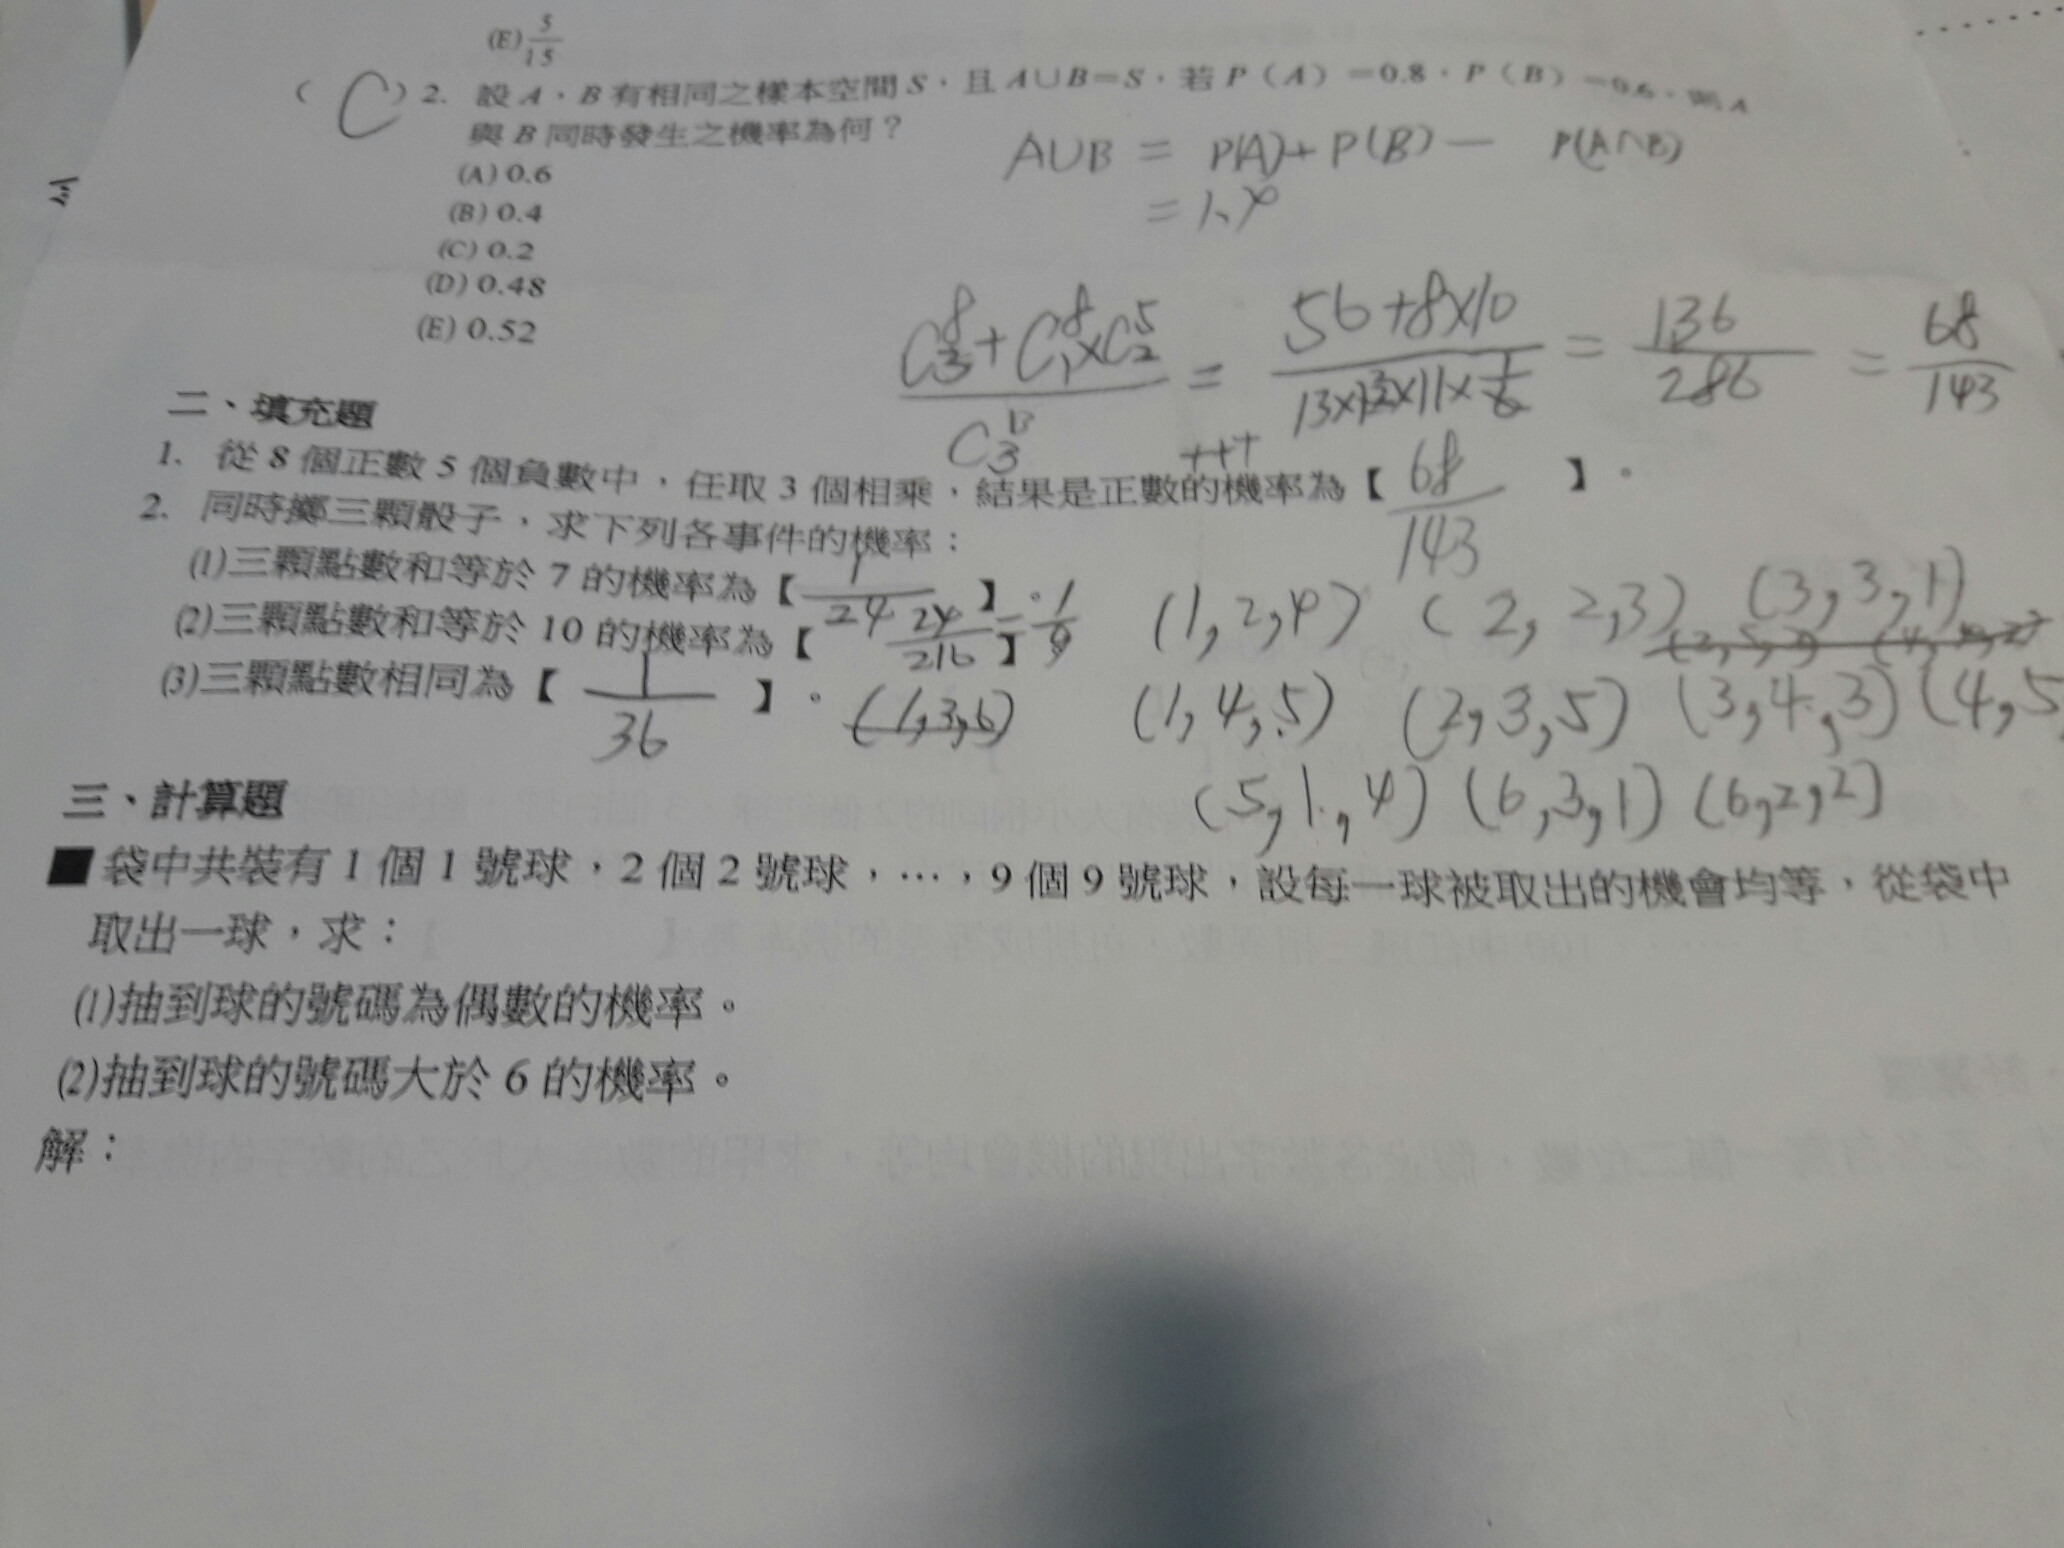 (E) 5/15
( C ) 2. 設 A、B 有相同之樣本空間 S，且 A∪B=S，若 P（A）=0.8，P（B）=0.6，則 A
與 B 同時發生之機率為何？
AUB = P(A)+P(B)− P(A∩B)
(A) 0.6
= 1.4
(B) 0.4
(C) 0.2
(D) 0.48
(E) 0.52
(C^8_3 + C^8_1×C^5_2)/C^13_3 = (56+8×10)/(13×12×11×1/6) = 136/286 = 68/143
二、填充題
1. 從 8 個正數 5 個負數中，任取 3 個相乘，結果是正數的機率為【 68/143 】。
+++
2. 同時擲三顆骰子，求下列各事件的機率：
(1)三顆點數和等於 7 的機率為【 1/24 】。
(1,2,4) (2,2,3) (3,3,1)
(2)三顆點數和等於 10 的機率為【 24/216 】= 1/9
(3)三顆點數相同為【 1/36 】。
(1,3,6) (1,4,5) (2,3,5) (3,4,3) (4,5
(5,1,4) (6,3,1) (6,2,2)
三、計算題
■ 袋中共裝有 1 個 1 號球，2 個 2 號球，…，9 個 9 號球，設每一球被取出的機會均等，從袋中
取出一球，求：
(1)抽到球的號碼為偶數的機率。
(2)抽到球的號碼大於 6 的機率。
解：